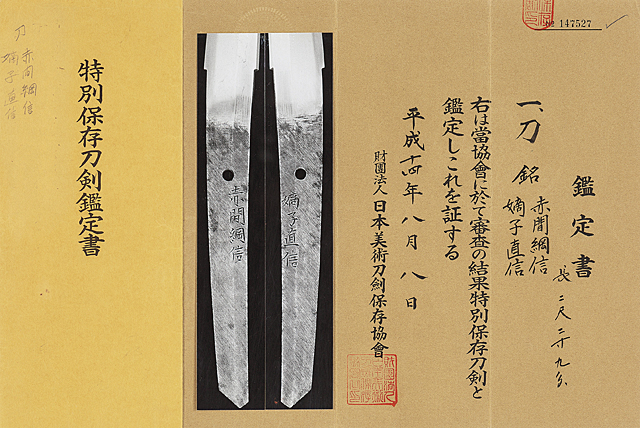 No 147527
鑑定書
一、刀 銘 赤間綱信
嫡子直信
長 二尺二寸九分
右は當協會に於て審査の結果特別保存刀剣と
鑑定しこれを証する
平成十四年八月八日
財團法人 日本美術刀剣保存協會
赤間綱信
嫡子直信
特別保存刀剣鑑定書
刀 赤間綱信
嫡子直信